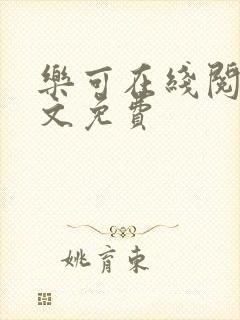 樂可在綫閱
文免費
姚育東